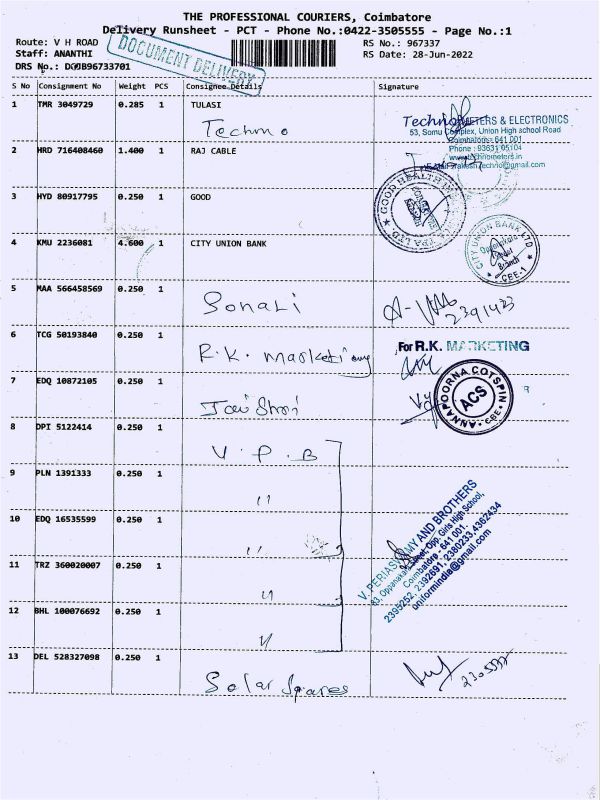 THE PROFESSIONAL COURIERS, Coimbatore
Delivery Runsheet - PCT - Phone No.:0422-3505555 - Page No.:1
Route: V H ROAD RS No.: 967337
Staff: ANANTHI RS Date: 28-Jun-2022
DRS No.:
DOCUMENT DELIVERY
S No Consignment No Weight PCS Consignee Details Signature
1 TMR 3049729 0.285 1 TULASI
Techno
TechnoMETERS & ELECTRONICS
53, Somu Complex, Union High school Road
Coimbatore- 641 001
Phone : 93631 05104
2 HRD 716408460 1.400 1 RAJ CABLE
3 HYD 80917795 0.250 1 GOOD
GOOD HEALTH
4 KMU 2236081 4.600 1 CITY UNION BANK
CITY UNION BANK LTD
Branch
CBE-1
5 MAA 566458569 0.250 1
Sonali
2391423
6 TCG 50193840 0.250 1
R.K. Marketing
For R.K. MARKETING
7 EDQ 10872105 0.250 1
Jai Shri
ANNAPOORNA COTSPIN
ACS
CBE
8 DPI 5122414 0.250 1
V. P. B
9 PLN 1391333 0.250 1
"
10 EDQ 16535599 0.250 1
"
11 TRZ 360020007 0.250 1
"
12 BHL 100076692 0.250 1
"
V. PERIASWAMY AND BROTHERS
Opp. Girls High School,
Coimbatore - 641 001.
2395252, 2392691, 2380233,4362434
uniformindia@gmail.com
13 DEL 528327098 0.250 1
Solar Spares